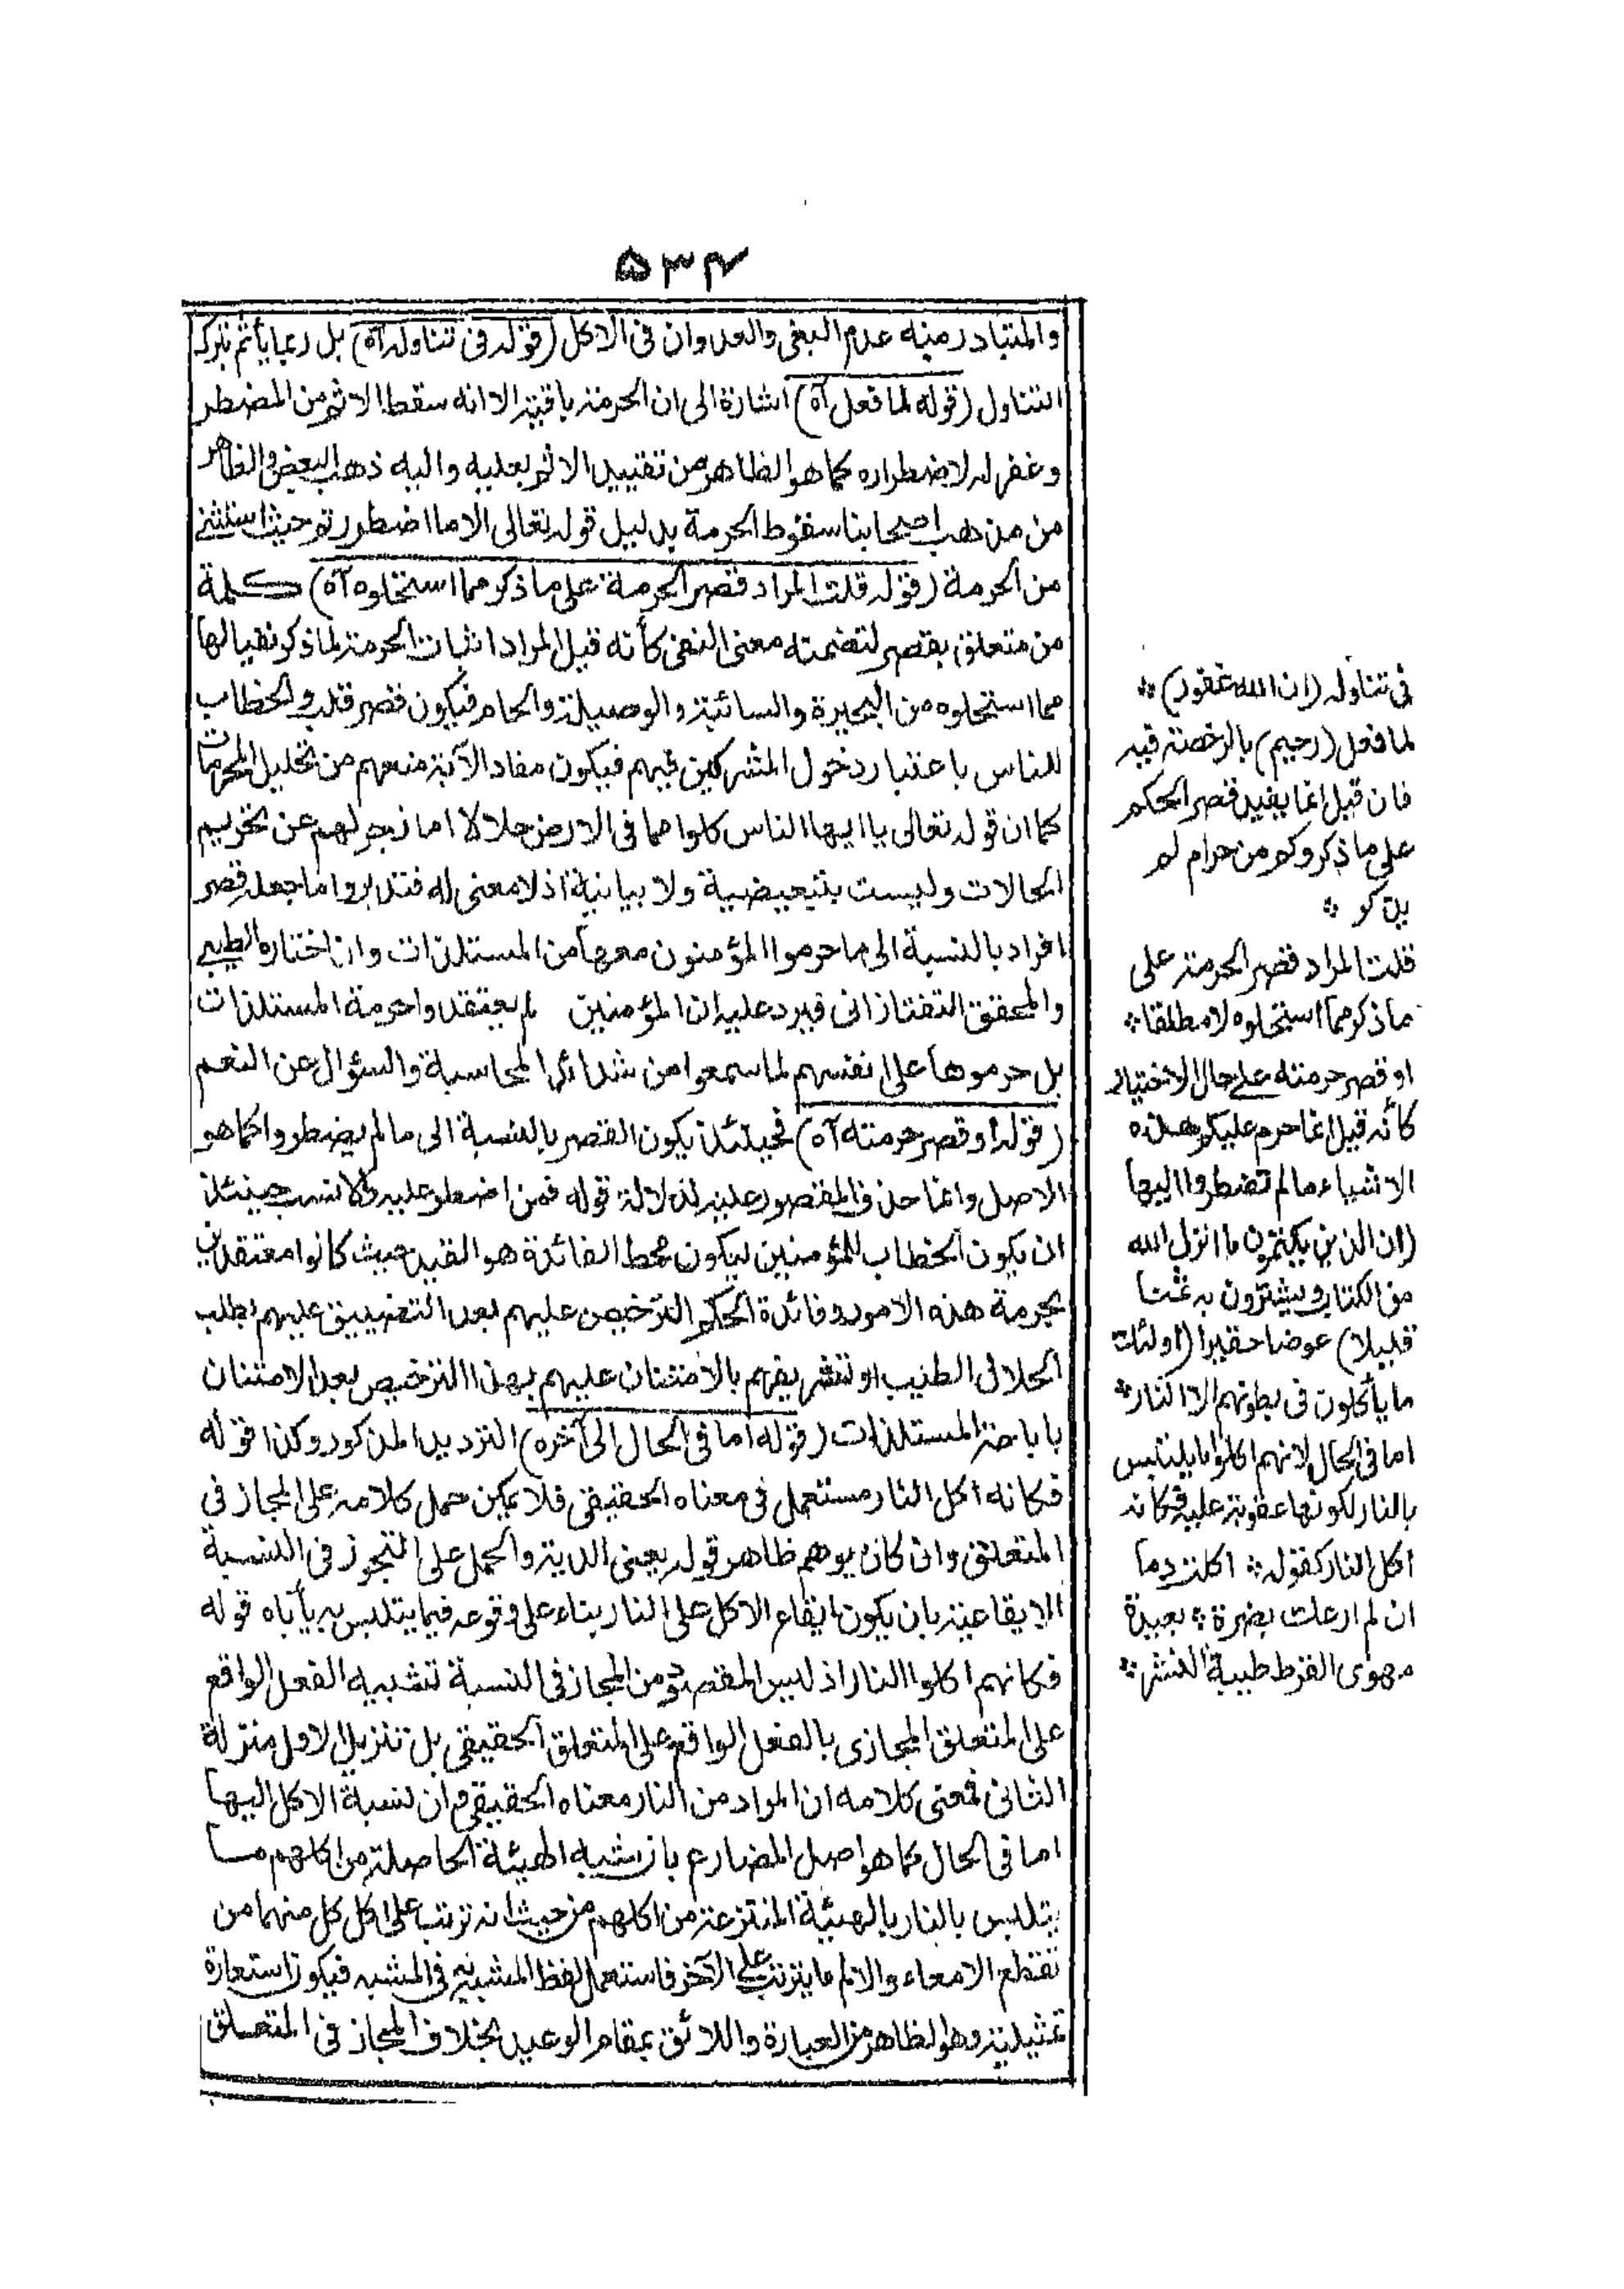 ۵۳۴
والمتبادر منه عدم البغى والعدوان فى الاكل (قوله فى تناوله آه) بل ربما يأثم بترك
التناول (قوله لما فعل آه) اشارة الى ان الحرمة باقية الا انه سقط الاثم من المضطر
وغفر له لاضطراره كما هو الظاهر من تقييد الاثم بعليه واليه ذهب البعض والظاهر
من مذهب اصحابنا سقوط الحرمة بدليل قوله تعالى الا ما اضطررتم حيث استثنى
من الحرمة (قوله قلت المراد قصر الحرمة على ما ذكر مما استحلوه آه) كلمة
من متعلق بقصر لتضمنه معنى النفى كأنه قيل المراد اثبات الحرمة لما ذكر نفيا لها
مما استحلوه من البحيرة والسائبة والوصيلة والحام فيكون قصر قلب والخطاب
للناس باعتبار دخول المشركين فيهم فيكون مفاد الآية منعهم من تحليل المحرمات
كما ان قوله تعالى يا ايها الناس كلوا مما فى الارض حلالا اما زجر لهم عن تحريم
الحالات وليست بتبعيضية ولا بيانية اذ لا معنى له فتدبر واما جعله قصر
افراد بالنسبة الى ما حرموا المؤمنون معها من المستلذات وان اختاره الطيبى
والمحقق التفتازانى فيرد عليه ان المؤمنين لم يعتقدوا حرمة المستلذات
بل حرموها على انفسهم لما سمعوا من شدائد المحاسبة والسؤال عن النعم
(قوله او قصر حرمته آه) فحينئذ يكون القصر بالنسبة الى ما لم يضطروا كما هو
الاصل وانما حذف المقصور عليه لدلالة قوله فمن اضطر عليه والانسب حينئذ
ان يكون الخطاب للمؤمنين ليكون محط الفائدة هو القيد حيث كانوا معتقدين
بحرمة هذه الامور وفائدة الحكم الترخيص عليهم بعد التضييق عليهم بطلب
الحلال الطيب او تشريفهم بالامتنان عليهم بهذا الترخيص بعد الامتنان
باباحة المستلذات (قوله اما فى الحال الى آخره) الترديد المذكور وكذا قوله
فكانه اكل النار مستعمل فى معناه الحقيقى فلا يمكن حمل كلامه على المجاز فى
المتعلق وان كان يوهم ظاهر قوله يعنى الدية والحمل على التجوز فى النسبة
الايقاعية بان يكون ايقاع الاكل على النار بناء على وقوعه فيما يتلبس به يأباه قوله
فكانهم اكلوا النار اذ ليس المقصود من المجاز فى النسبة تشبيه الفعل الواقع
على المتعلق المجازى بالفعل الواقع على المتعلق الحقيقى بل تنزيل الاول منزلة
الثانى فمعنى كلامه ان المراد من النار معناه الحقيقى وان نسبة الاكل اليها
اما فى الحال كما هو اصل المضارع بان شبه الهيئة الحاصلة من اكلهم مـا
يتلبس بالنار بالهيئة المنتزعة من اكلهم من حيث انه ترتب على اكل كل منهما من
تقطع الامعاء والالم ما يترتب على الآخر فاستعمال لفظ المشبه به فى المشبه فيكون استعارة
تمثيلية وهو الظاهر من العبارة واللائق بمقام الوعيد بخلاف المجاز فى المتعلق
فى تناوله (ان الله غفور) *
لما فعل (رحيم) بالرخصة فيه
فان قيل انما يفيد قصر الحكم
على ما ذكر وكم من حرام لم
يذكر *
قلت المراد قصر الحرمة على
ما ذكر مما استحلوه لا مطلقا *
او قصر حرمته على حال الاختيار
كأنه قيل انما حرم عليكم هذه
الاشياء ما لم تضطروا اليها
(ان الذين يكتمون ما انزل الله
من الكتاب ويشترون به ثمنا
قليلا) عوضا حقيرا (اولئك
ما يأكلون فى بطونهم الا النار *
اما فى الحال لانهم اكلوا ما يلتبس
بالنار لكونها عقوبة عليه فكانه
اكل النار كقوله * اكلت دما
ان لم ارعك بضرة * بعيدة
مهوى القرط طيبة النشر *